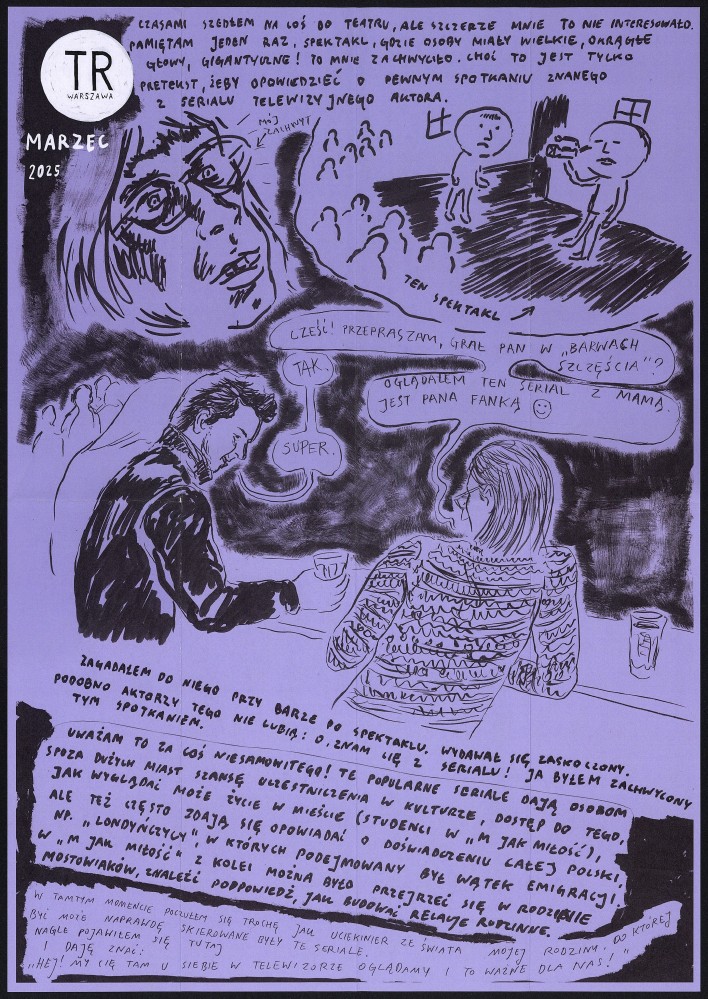 CZASAMI SZEDŁEM NA COŚ DO TEATRU, ALE SZCZERZE MNIE TO NIE INTERESOWAŁO.
PAMIĘTAM JEDEN RAZ, SPEKTAKL, GDZIE OSOBY MIAŁY WIELKIE, OKRĄGŁE
GŁOWY, GIGANTYCZNE! TO MNIE ZACHWYCIŁO. CHOĆ TO JEST TYLKO
PRETEKST, ŻEBY OPOWIEDZIEĆ O PEWNYM SPOTKANIU ZNANEGO
Z SERIALU TELEWIZYJNEGO AKTORA.
TR
WARSZAWA
MARZEC
2025
MÓJ
ZACHWYT
TEN SPEKTAKL
CZEŚĆ! PRZEPRASZAM, GRAŁ PAN W „BARWACH
SZCZĘŚCIA"?
TAK.
OGLĄDAŁEM TEN SERIAL Z MAMĄ.
JEST PANA FANKĄ
SUPER.
ZAGADAŁEM DO NIEGO PRZY BARZE PO SPEKTAKLU. WYDAWAŁ SIĘ ZASKOCZONY.
PODOBNO AKTORZY TEGO NIE LUBIĄ: O, ZNAM CIĘ Z SERIALU! JA BYŁEM ZACHWYCONY
TYM SPOTKANIEM.
UWAŻAM TO ZA COŚ NIESAMOWITEGO! TE POPULARNE SERIALE DAJĄ OSOBOM
SPOZA DUŻYCH MIAST SZANSĘ UCZESTNICZENIA W KULTURZE, DOSTĘP DO TEGO,
JAK WYGLĄDAĆ MOŻE ŻYCIE W MIEŚCIE (STUDENCI W „M JAK MIŁOŚĆ),
ALE TEŻ CZĘSTO ZDAJĄ SIĘ OPOWIADAĆ O DOŚWIADCZENIU CAŁEJ POLSKI,
NP. „LONDYŃCZYCY" W KTÓRYCH PODEJMOWANY BYŁ WĄTEK EMIGRACJI.
W „M JAK MIŁOŚĆ" Z KOLEI MOŻNA BYŁO PRZEJRZEĆ SIĘ W RODZINIE
MOSTOWIAKÓW, ZNALEŹĆ PODPOWIEDŹ, JAK BUDOWAĆ RELACJE RODZINNE.
W TAMTYM MOMENCIE POCZUŁEM SIĘ TROCHĘ JAK UCIEKINIER ZE ŚWIATA MOJEJ RODZINY, DO KTÓREJ
BYĆ MOŻE NAPRAWDĘ SKIEROWANE BYŁY TE SERIALE.
NAGLE POJAWIŁEM SIĘ TUTAJ
I DAJĘ ZNAĆ:
„HEJ! MY CIĘ TAM U SIEBIE W TELEWIZORZE OGLĄDAMY I TO WAŻNE DLA NAS!"